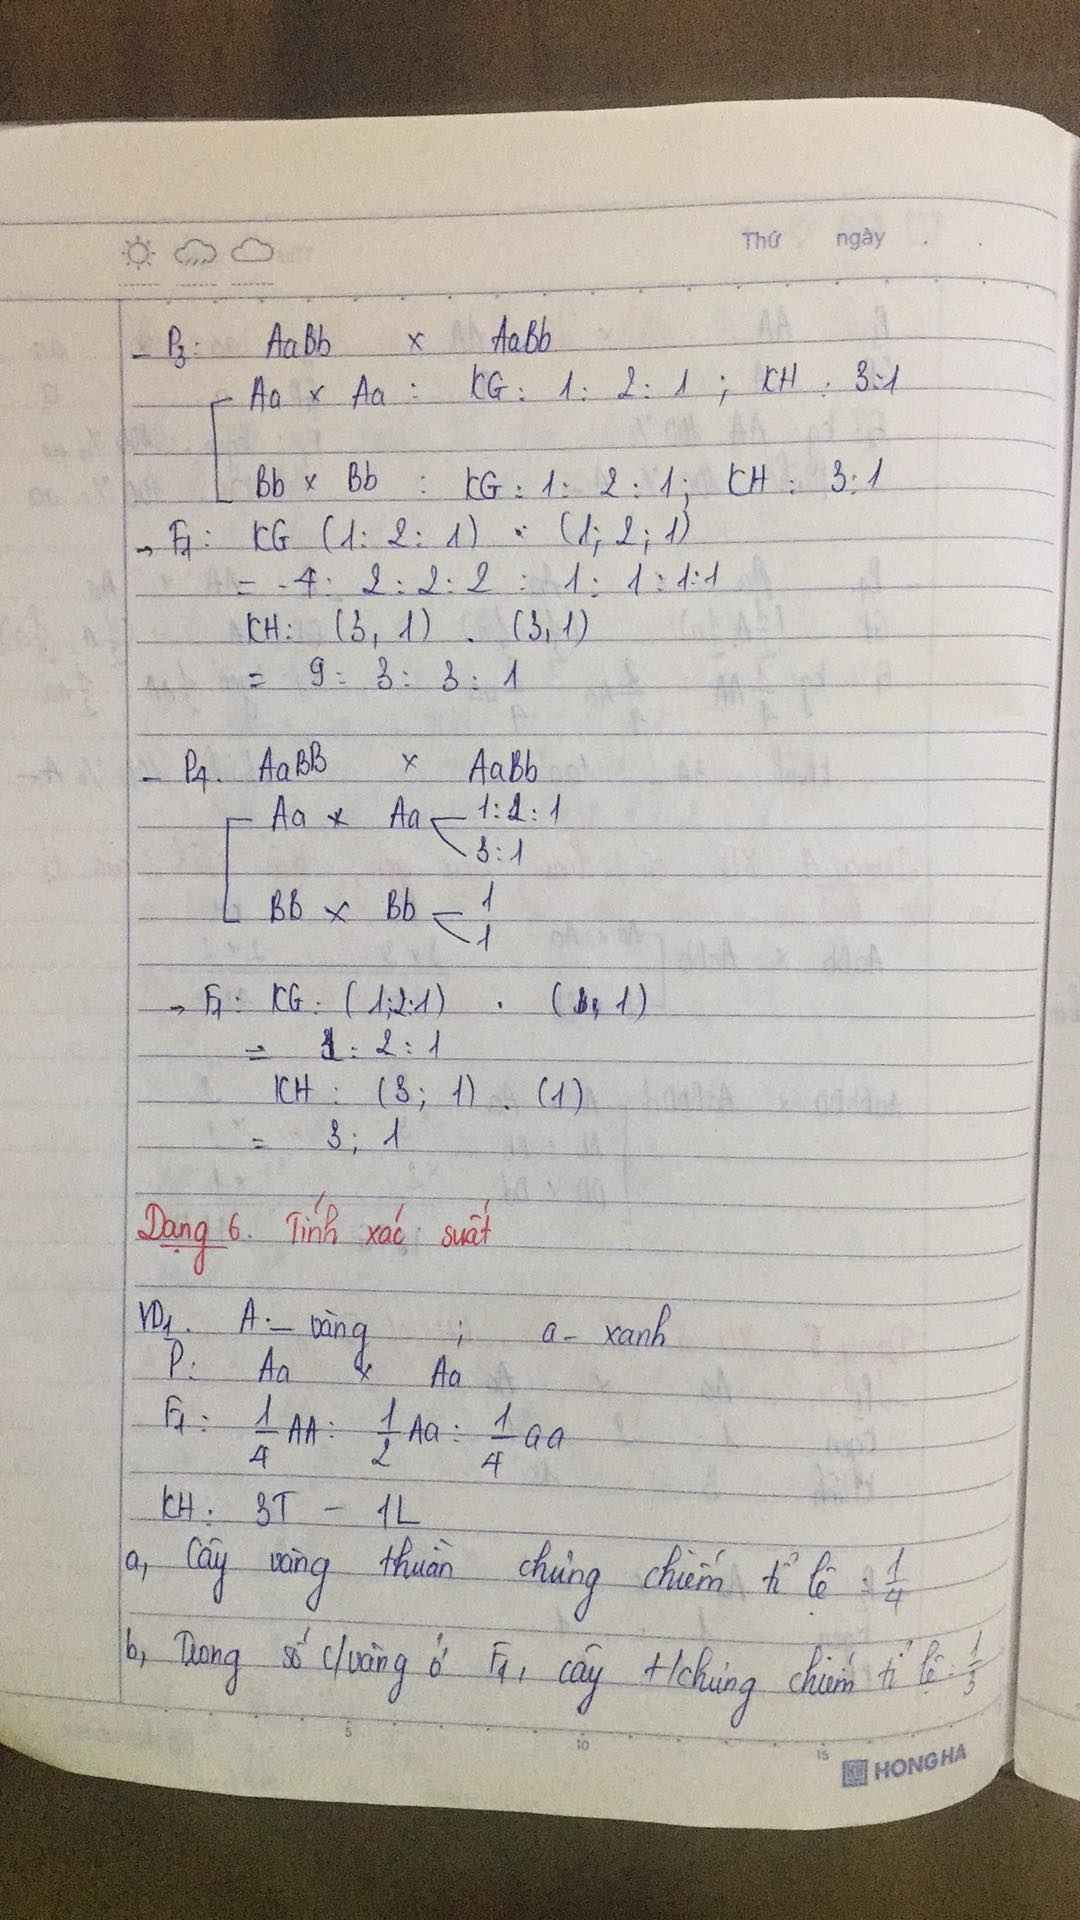 Thứ ngày
- P3: AaBb x AaBb
Aa x Aa : KG: 1: 2: 1 ; KH: 3:1
Bb x Bb : KG: 1: 2: 1; KH: 3:1
→ F1: KG (1: 2: 1) . (1; 2; 1)
= 4: 2: 2: 2 : 1: 1: 1:1
KH: (3, 1) . (3,1)
= 9: 3: 3: 1
- P4. AaBB x AaBb
Aa x Aa 1:2:1
3:1
BB x Bb 1
1
→ F1: KG: (1;2:1) . (1, 1)
= 1: 2: 1
KH: (3; 1) . (1)
= 3; 1
Dạng 6. Tính xác suất
VD1. A - vàng ; a - xanh
P: Aa x Aa
F1: 1/4 AA: 1/2 Aa: 1/4 aa
KH: 3T - 1L
a, Cây vàng thuần chủng chiếm tỉ lệ: 1/4
b, Trong số c/vàng ở F1, cây t/chủng chiếm tỉ lệ: 1/3
5 10 15
HONG HA